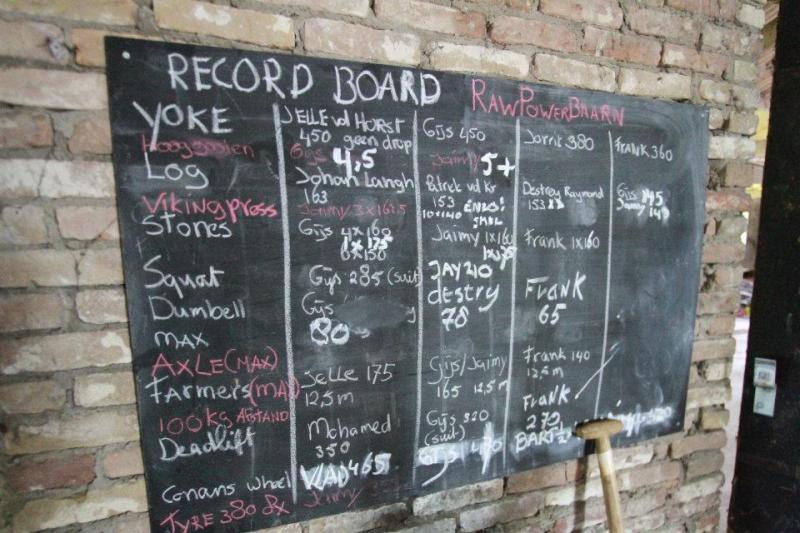 RECORD BOARD RAWPOWERBAARN
YOKE JELLE vd HORST Gijs 450 Jorrit 380 FRANK 360
450 geen drop
Hooggooien Gijs 4,5 Jaimy 5+
Log Johan Langh Patrick vd Kr Destry Raymond Gijs 145
163 153 153 Jaimy
Vikingpress Jaimy 3x 10x140
Stones Gijs 4x160 Jaimy 1x160 Frank 1x160
1x175
6x150
Squat Gijs 285 (suit) JAY 210 FRANK
Dumbell Gijs destry 65
max 80 78
AXLE (MAX) Frank 140
FARMERS (MAX) Jelle 175 Gijs/Jaimy 12,5m
12,5m 165 12,5m FRANK
100kg AFSTAND Mohamed Gijs 320 270
Deadlift 350 (suit) BART
VLAD 465 Gijs 470
Conans wheel Jaimy
TYRE 380 8x